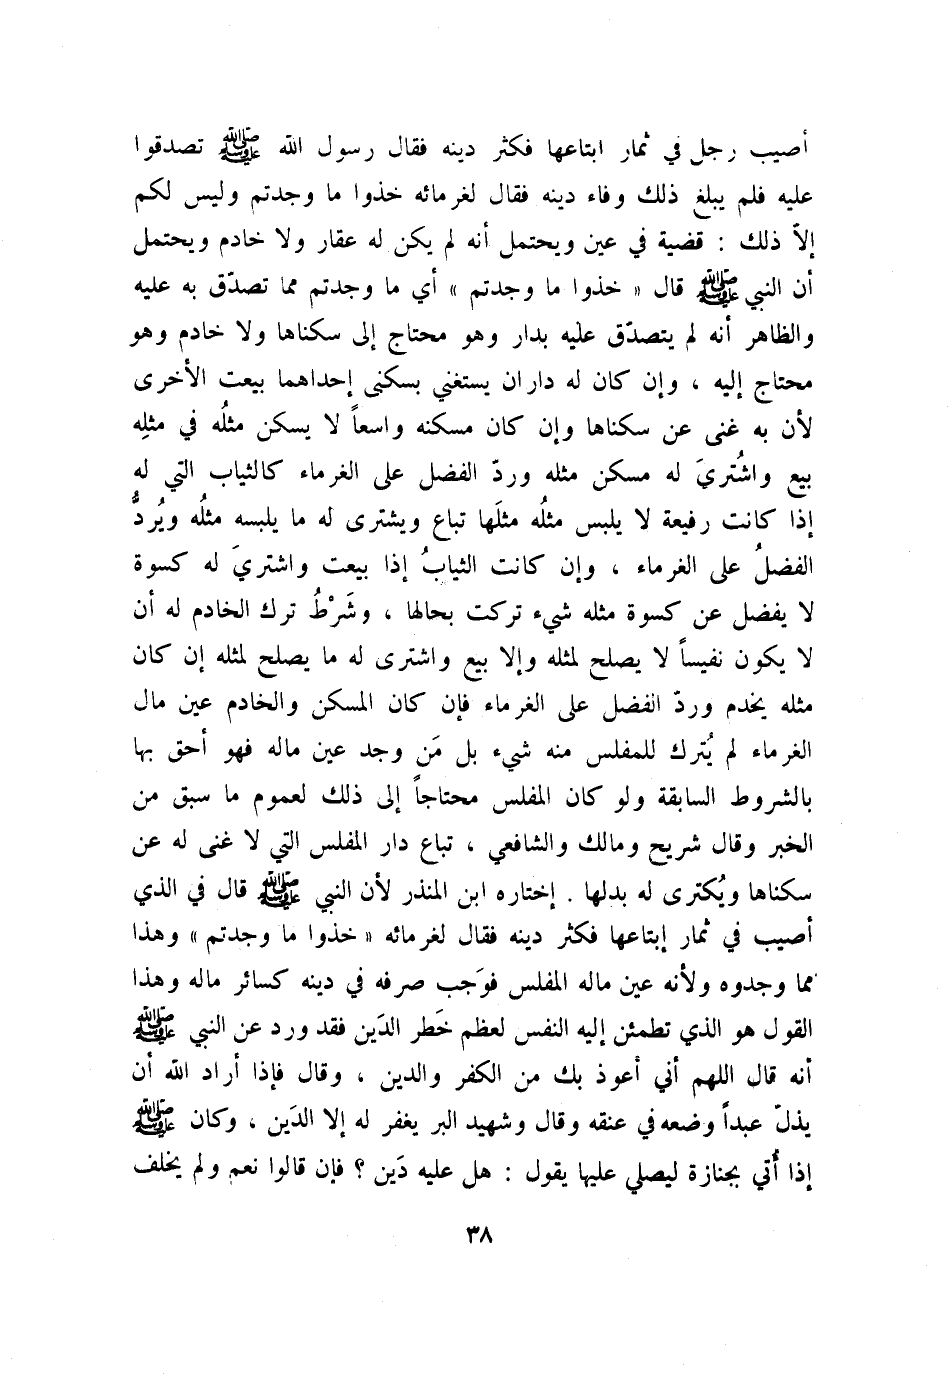 أصيب رجل في ثمار ابتاعها فكثر دينه فقال رسول الله ﷺ تصدقوا
عليه فلم يبلغ ذلك وفاء دينه فقال لغرمائه خذوا ما وجدتم وليس لكم
إلاّ ذلك : قضية في عين ويحتمل أنه لم يكن له عقار ولا خادم ويحتمل
أن النبي ﷺ قال « خذوا ما وجدتم » أي ما وجدتم مما تصدّق به عليه
والظاهر أنه لم يتصدّق عليه بدار وهو محتاج إلى سكناها ولا خادم وهو
محتاج إليه ، وإن كان له داران يستغني بسكنى إحداهما بيعت الأخرى
لأن به غنى عن سكناها وإن كان مسكنه واسعاً لا يسكن مثلُه في مثلِه
بيع واشتُريَ له مسكن مثله وردّ الفضل على الغرماء كالثياب التي له
إذا كانت رفيعة لا يلبس مثلُه مثلَها تباع ويشترى له ما يلبسه مثلُه ويُردُّ
الفضلُ على الغرماء ، وإن كانت الثيابُ إذا بيعت واشتريَ له كسوة
لا يفضل عن كسوة مثله شيء تركت بحالها ، وشَرْطُ ترك الخادم له أن
لا يكون نفيساً لا يصلح لمثله وإلا بيع واشترى له ما يصلح لمثله إن كان
مثله يخدم وردّ الفضل على الغرماء فإن كان المسكن والخادم عين مال
الغرماء لم يُترك للمفلس منه شيء بل مَن وجد عين ماله فهو أحق بها
بالشروط السابقة ولو كان المفلس محتاجاً إلى ذلك لعموم ما سبق من
الخبر وقال شريح ومالك والشافعي ، تباع دار المفلس التي لا غنى له عن
سكناها ويُكترى له بدلها . إختاره ابن المنذر لأن النبي ﷺ قال في الذي
أصيب في ثمار إبتاعها فكثر دينه فقال لغرمائه « خذوا ما وجدتم » وهذا
مما وجدوه ولأنه عين ماله المفلس فوَجب صرفه في دينه كسائر ماله وهذا
القول هو الذي تطمئن إليه النفس لعظم خَطر الدَين فقد ورد عن النبي ﷺ
أنه قال اللهم أني أعوذ بك من الكفر والدين ، وقال فإذا أراد الله أن
يذلّ عبداً وضعه في عنقه وقال وشهيد البر يغفر له إلا الدَين ، وكان ﷺ
إذا أُتي بجنازة ليصلي عليها يقول : هل عليه دَين ؟ فإن قالوا نعم ولم يخلف
٣٨